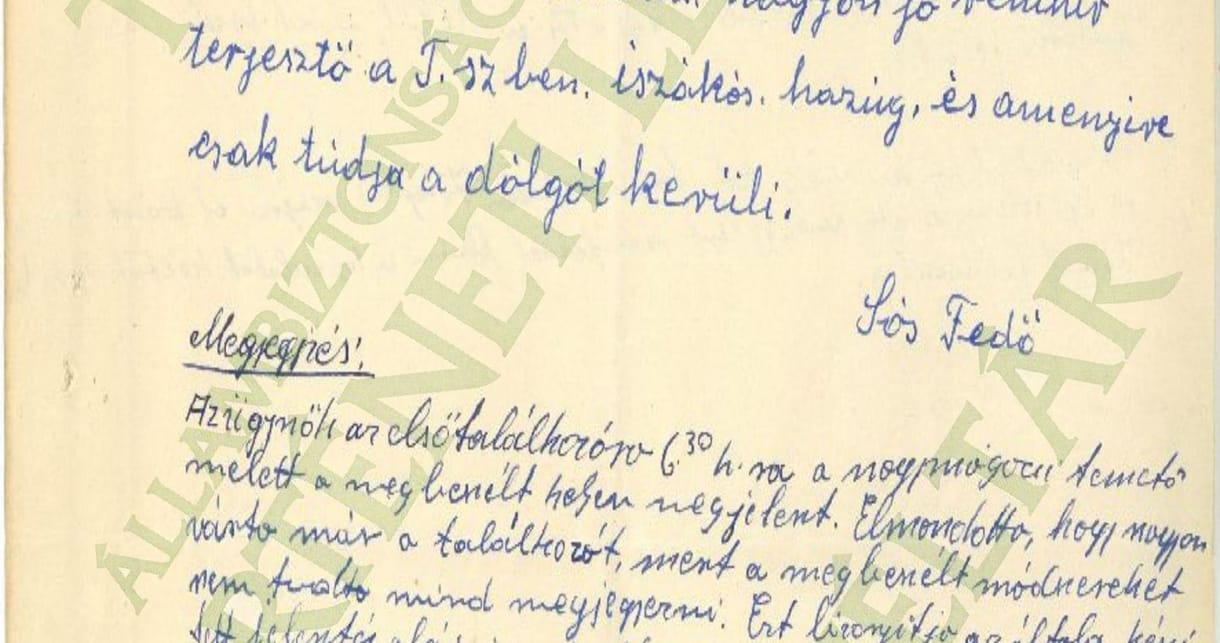 nagyon jó rémhír
terjesztő a T.sz ben. iszákós. hazúg, és amenyire
csak túdja a dólgót kerüli.
Sós Fedő
Megjegzés:
Az ügynök az első találkozóra 6.30 h.-ra a nagymágocsi temető
melett a megbeszélt helyen megjelent. Elmondotta, hogy nagyon
várta már a találkozót, mert a megbeszélt módszereket
nem tudta mind megjegyezni. Ezt bizonyítja az általa
tett jelentés
ÁLLAMBIZTONSÁG
TÖRTÉNETI LE
TÁR